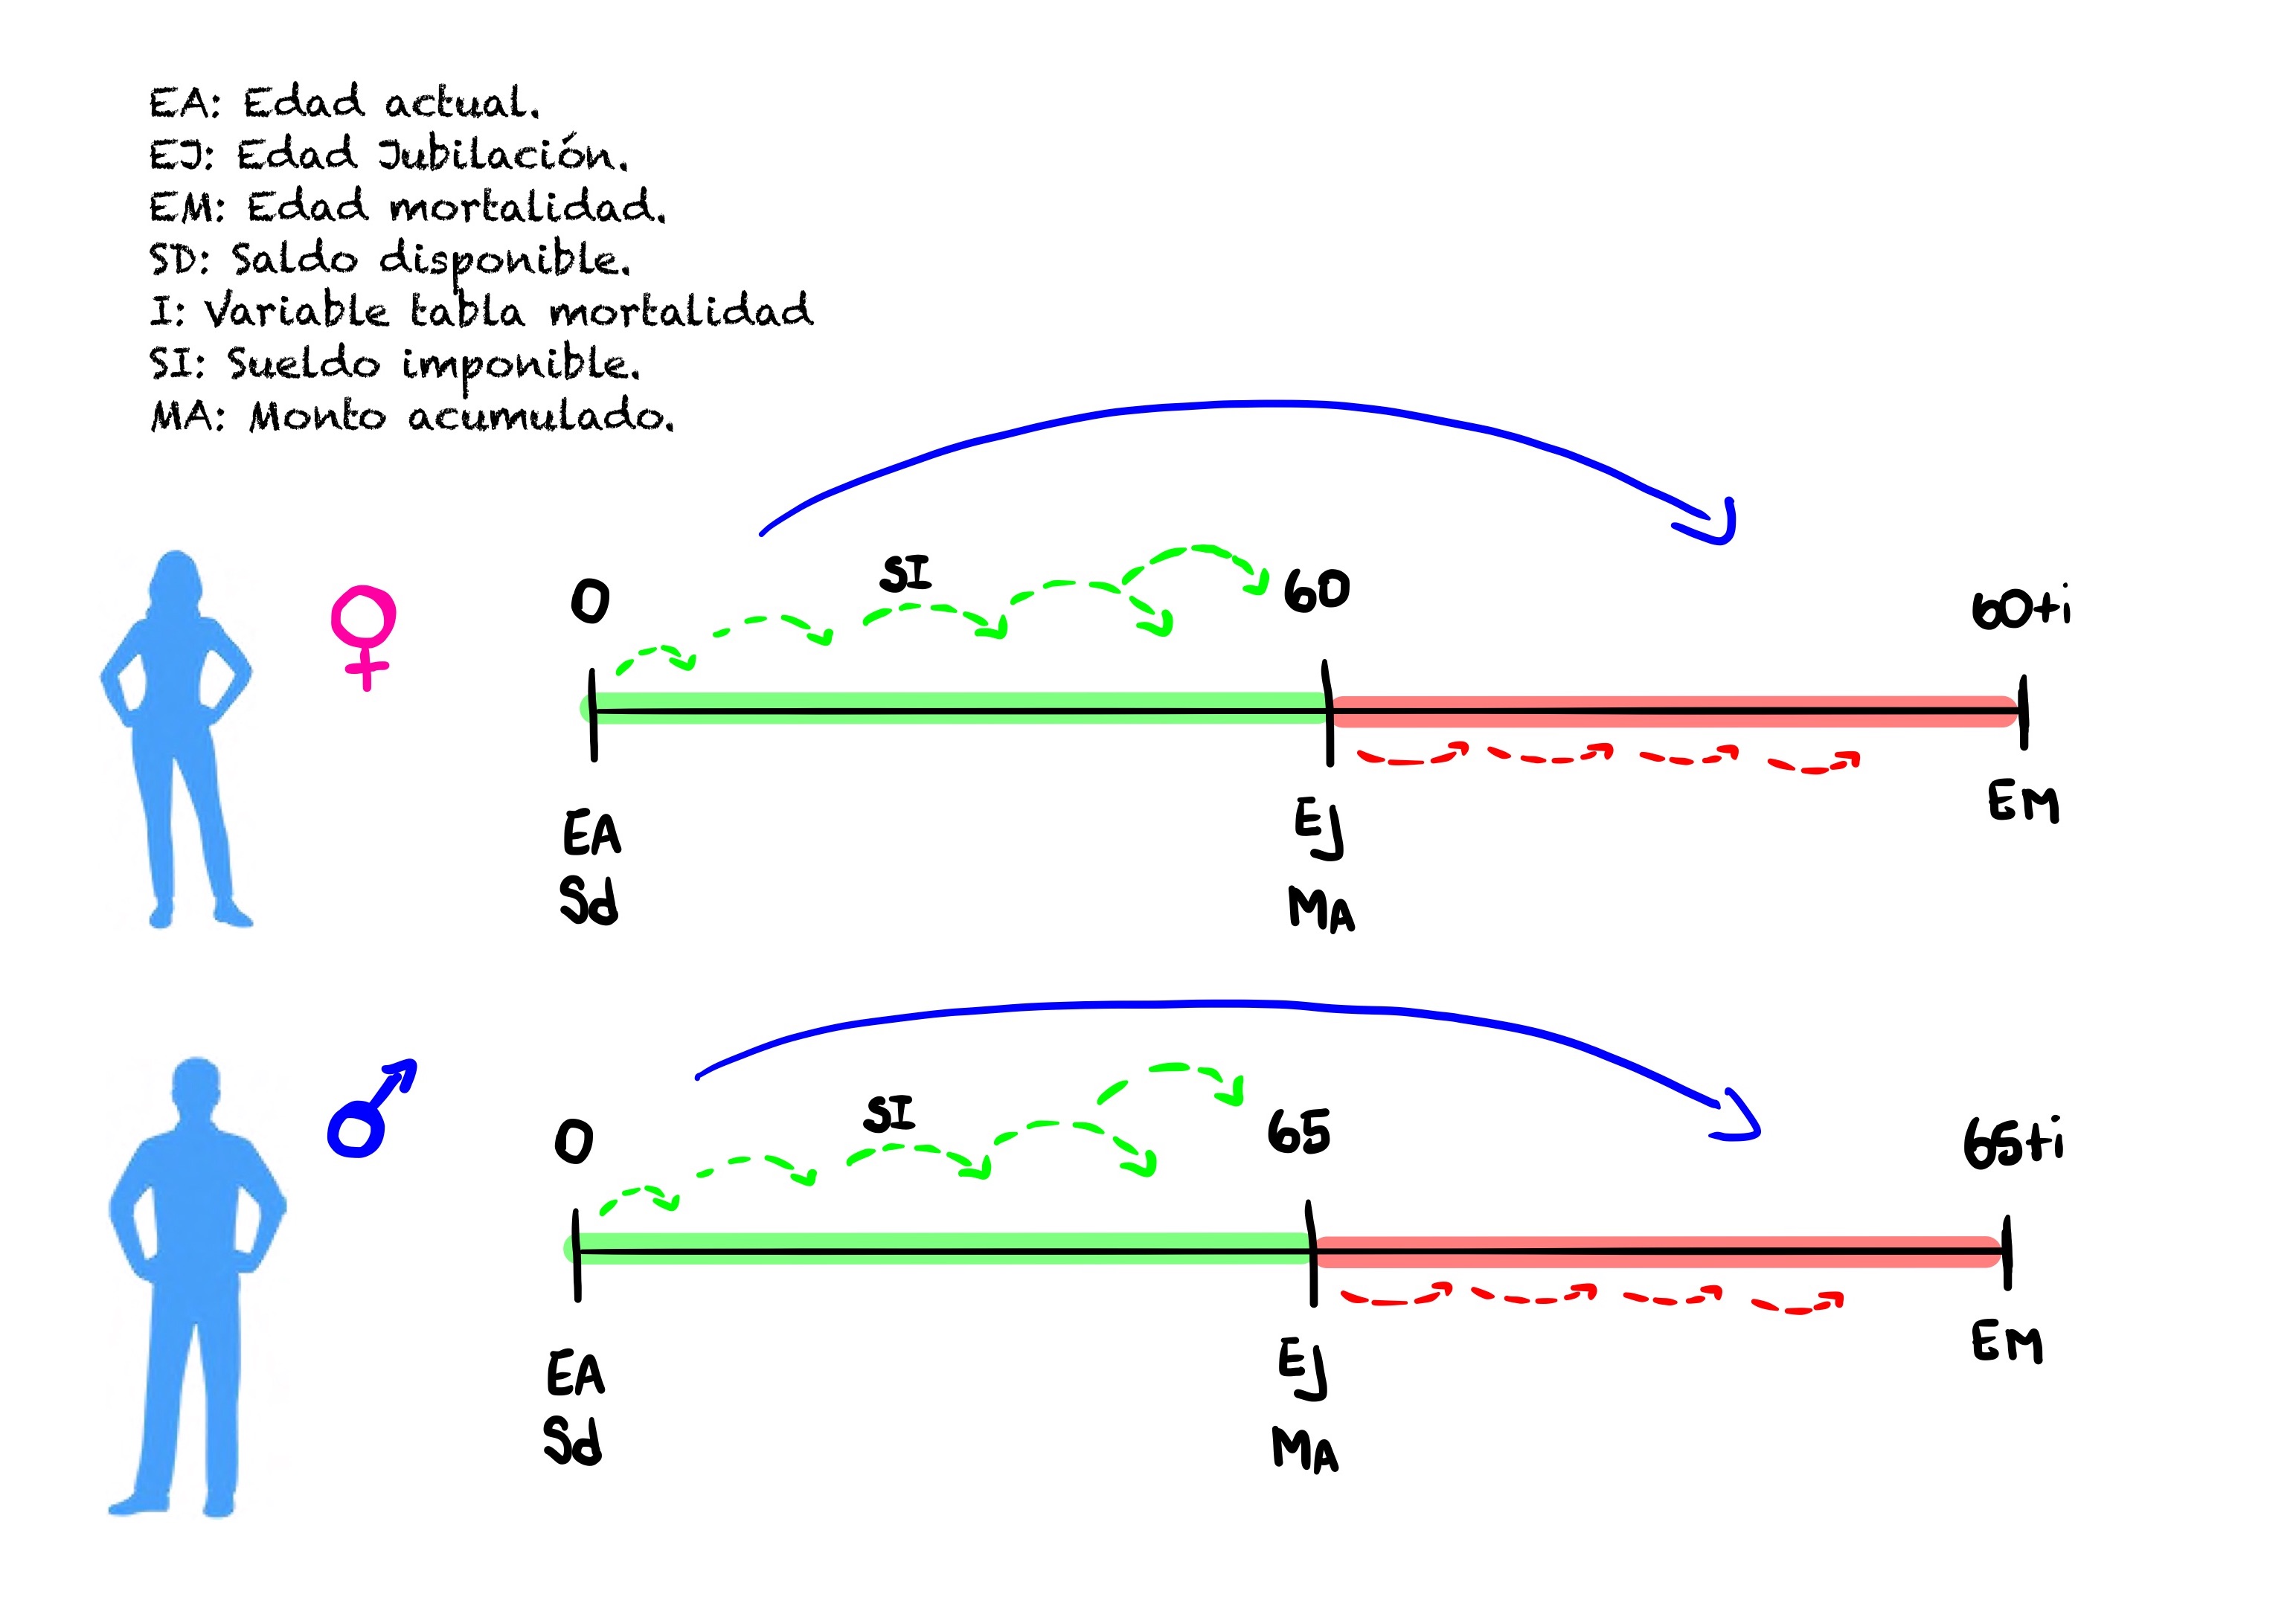 EA: Edad actual.
EJ: Edad Jubilación.
EM: Edad mortalidad.
SD: Saldo disponible.
I: Variable tabla mortalidad
SI: Sueldo imponible.
MA: Monto acumulado.
0 SI 60 60+i
EA EJ EM
Sd MA
0 SI 65 65+i
EA EJ EM
Sd MA